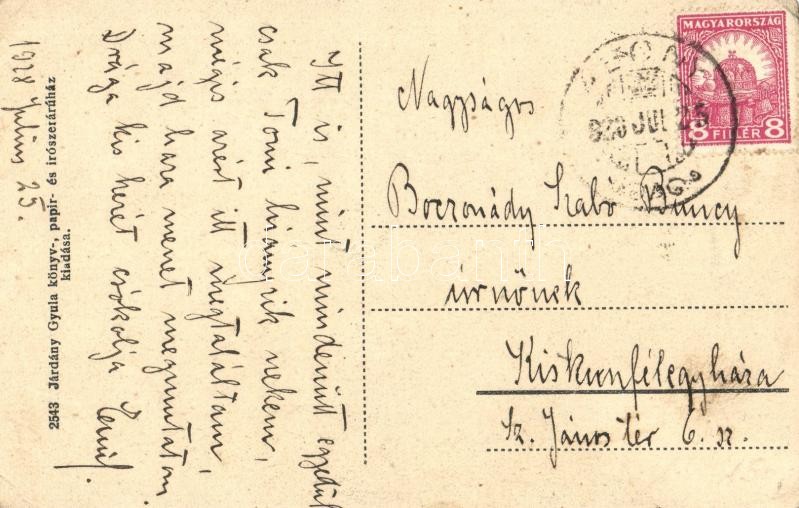 1928 Julius 25.
Itt is, mint mindenütt egyedül
csak Tomi hiányzik nekem,
mégis azért itt megtaláltam,
majd haza menet megmutatom
Drága kis kezét csókolja
2543 Járdány Gyula könyv-, papir- és irószerárúház
kiadása.
MAGYARORSZÁG
8 FILLÉR 8
928 JUL 25
Nagyságos
Boczonády Szabó Buncy
úrnőnek
Kiskunfélegyháza
Sz. János tér 6. sz.
darabanth